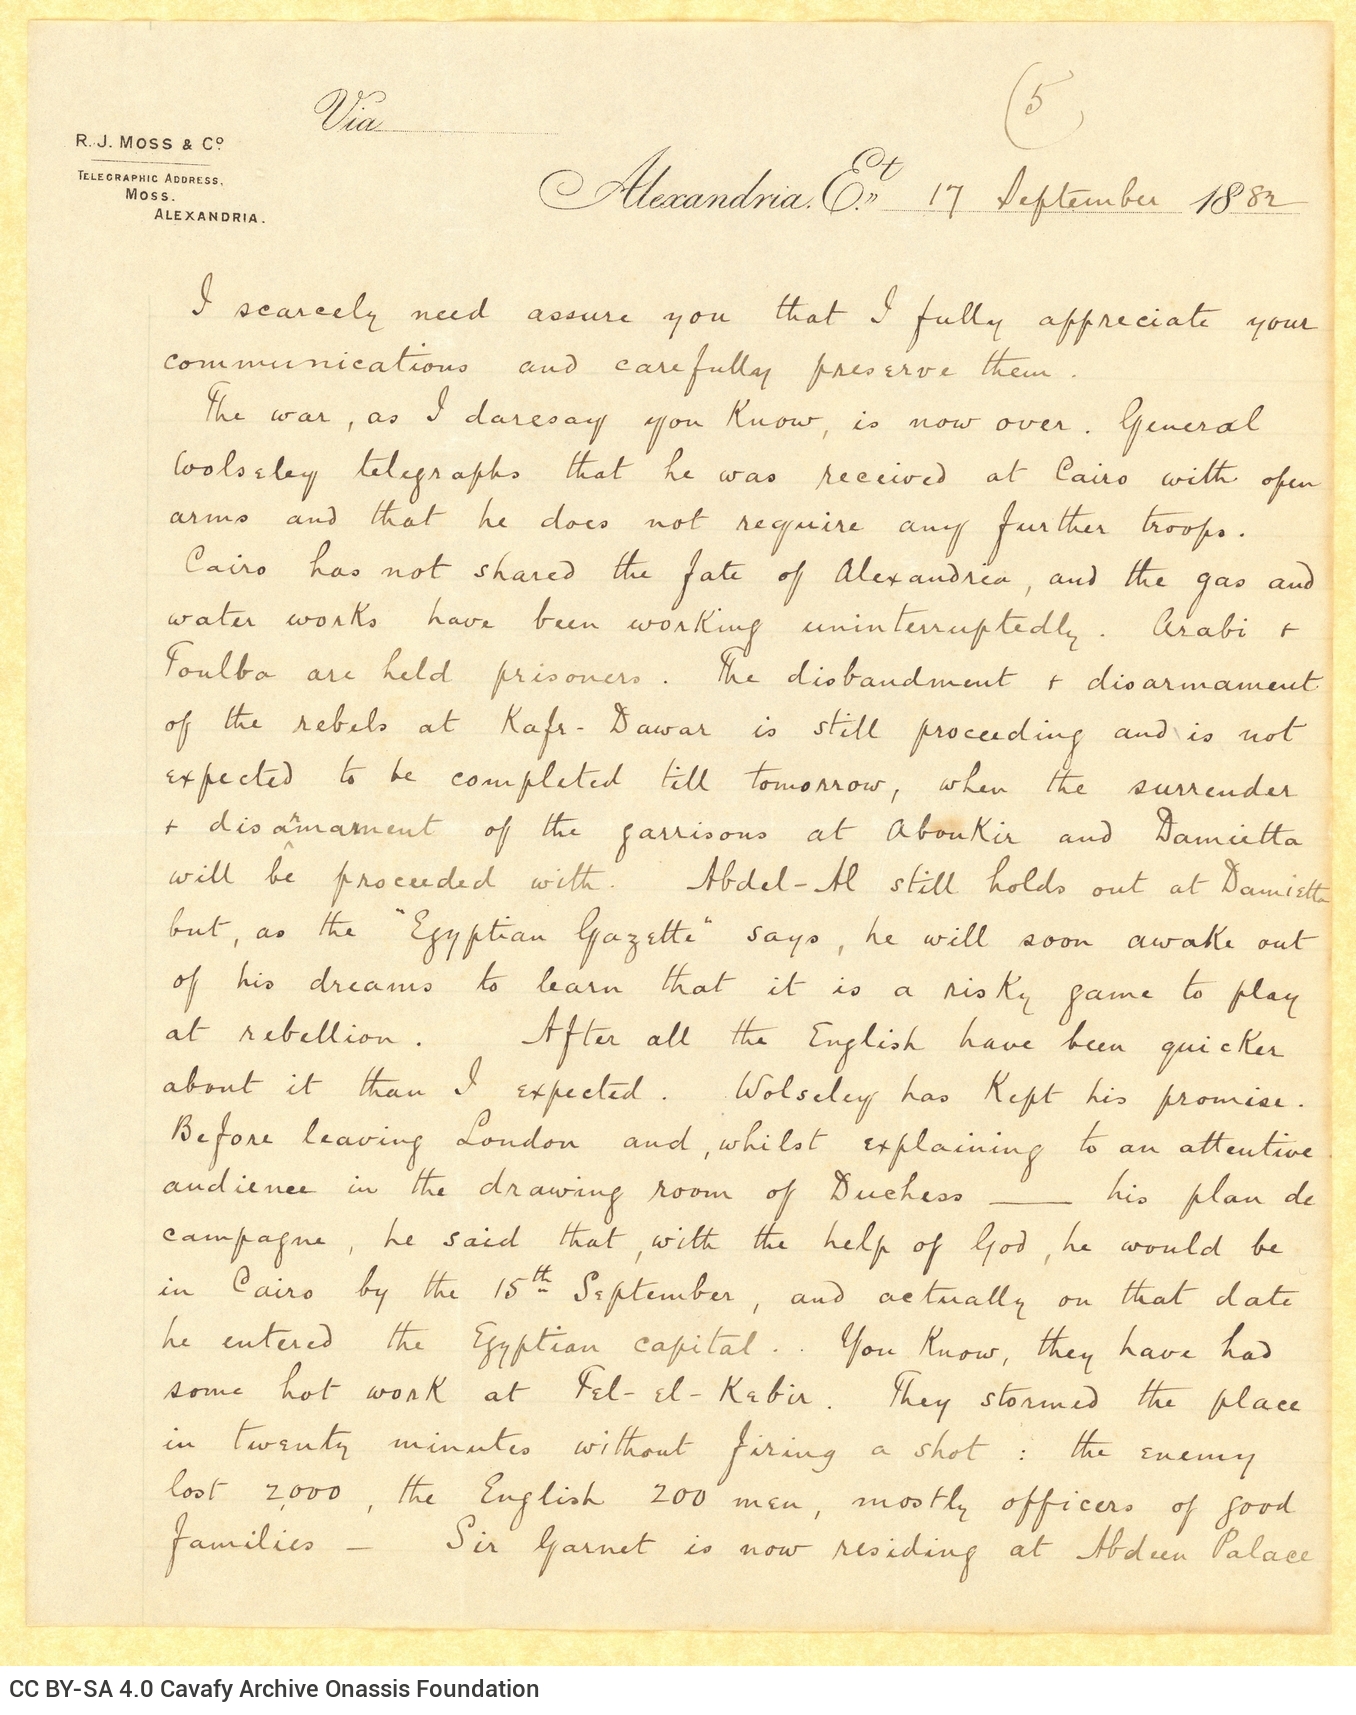 (5)
Via
R. J. MOSS & Cº
TELEGRAPHIC ADDRESS,
MOSS.
ALEXANDRIA.
Alexandria. Et. 17 September 1882
I scarcely need assure you that I fully appreciate your
communications and carefully preserve them.
The war, as I daresay you know, is now over. General
Wolseley telegraphs that he was received at Cairo with open
arms and that he does not require any further troops.
Cairo has not shared the fate of Alexandria, and the gas and
water works have been working uninterruptedly. Arabi +
Toulba are held prisoners. The disbandment + disarmament
of the rebels at Kafr-Dawar is still proceeding and is not
expected to be completed till tomorrow, when the surrender
+ disarmament of the garrisons at Aboukir and Damietta
will be proceeded with. Abdel-Al still holds out at Damietta
but, as the "Egyptian Gazette" says, he will soon awake out
of his dreams to learn that it is a risky game to play
at rebellion. After all the English have been quicker
about it than I expected. Wolseley has kept his promise.
Before leaving London and, whilst explaining to an attentive
audience in the drawing room of Duchess —— his plan de
campagne, he said that, with the help of God, he would be
in Cairo by the 15th September, and actually on that date
he entered the Egyptian capital.. You know, they have had
some hot work at Tel-el-Kebir. They stormed the place
in twenty minutes without firing a shot: the enemy
lost 2,000, the English 200 men, mostly officers of good
families — Sir Garnet is now residing at Abdeen Palace
CC BY-SA 4.0 Cavafy Archive Onassis Foundation